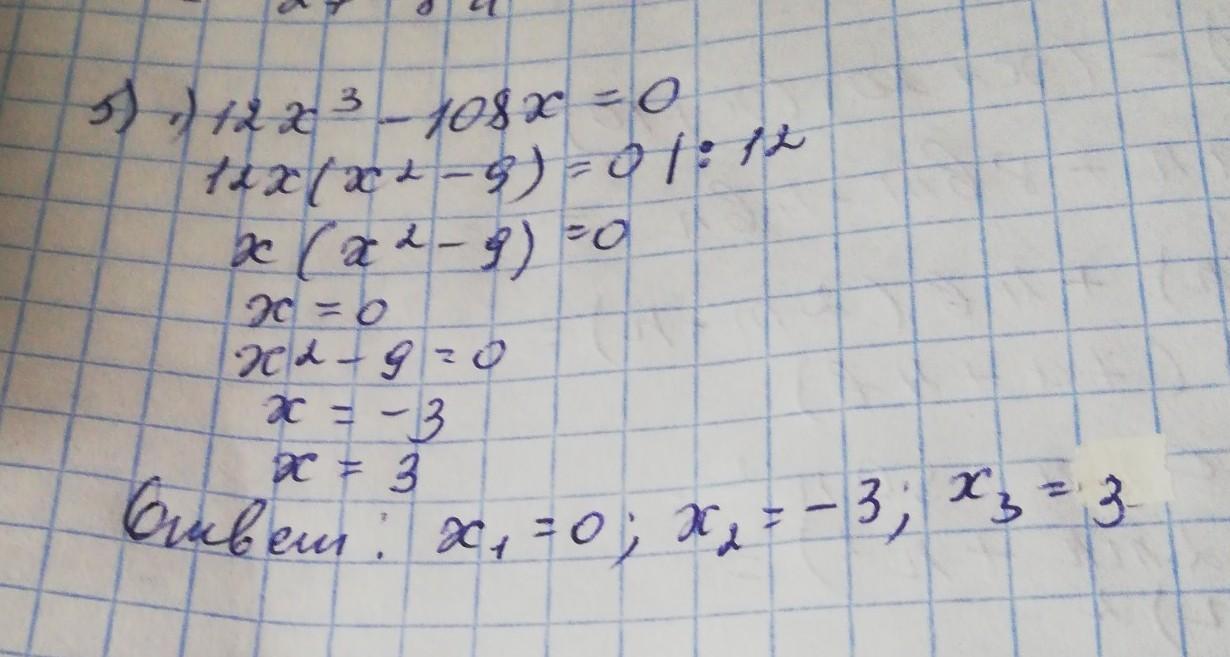 5) 1) 12x³ - 108x = 0
12x(x² - 9) = 0 | : 12
x (x² - 9) = 0
x = 0
x² - 9 = 0
x = -3
x = 3
Ответ: x₁ = 0; x₂ = -3; x₃ = 3